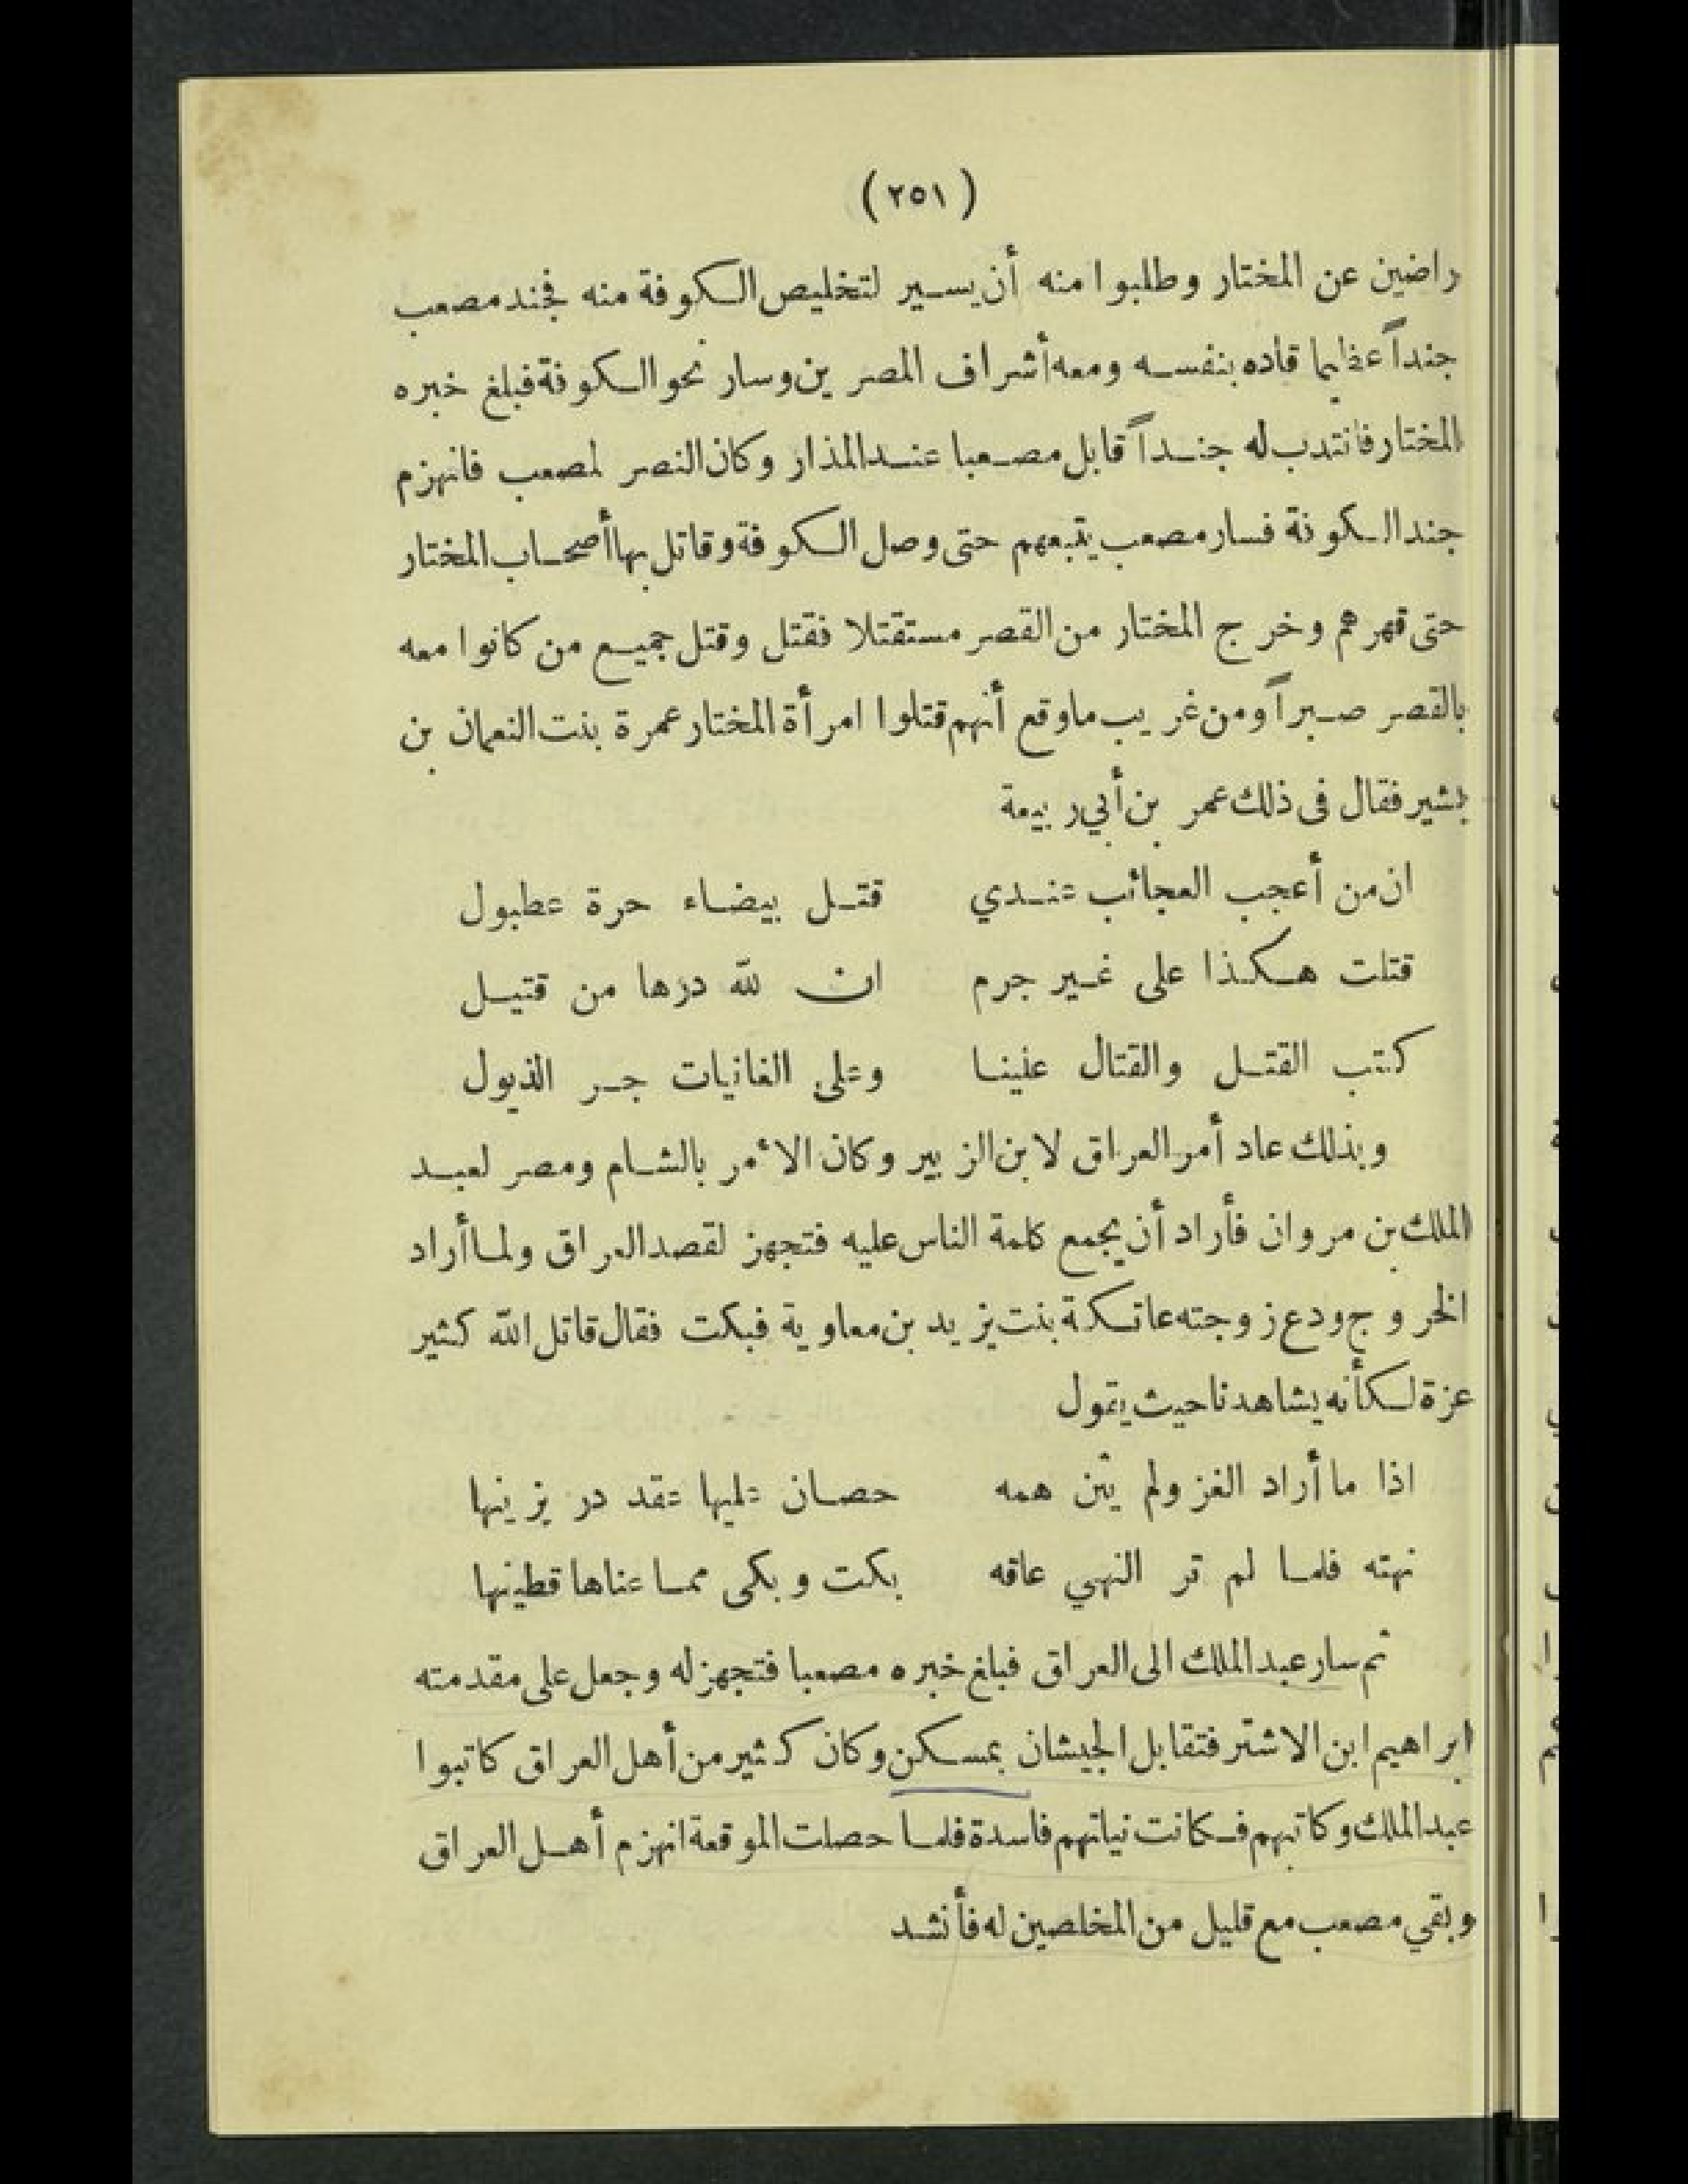 (٢٥١)
راضين عن المختار وطلبوا منه أن يسير لتخليص الكوفة منه فجند مصعب
جنداً عظيما قاده بنفسه ومعه أشراف المصرين وسار نحو الكوفة فبلغ خبره
المختار فانتدب له جنداً قابل مصعبا عند المذار وكان النصر لمصعب فانهزم
جند الكوفة فسار مصعب يتبعهم حتى وصل الكوفة وقاتل بها أصحاب المختار
حتى قهرهم وخرج المختار من القصر مستقتلا فقتل وقتل جميع من كانوا معه
بالقصر صبراً ومن غريب ماوقع أنهم قتلوا امرأة المختار عمرة بنت النعمان بن
بشير فقال فى ذلك عمر بن أبي ربيعة
ان من أعجب العجائب عندي قتل بيضاء حرة عطبول
قتلت هكذا على غير جرم ان لله درها من قتيل
كتب القتل والقتال علينا وعلى الغانيات جر الذيول
وبذلك عاد أمر العراق لابن الزبير وكان الأمر بالشام ومصر لعبد
الملك بن مروان فأراد أن يجمع كلمة الناس عليه فتجهز لقصد العراق ولما أراد
الخروج ودع زوجته عاتكة بنت يزيد بن معاوية فبكت فقال قاتل الله كثير
عزة لكأنه يشاهدنا حيث يقول
اذا ما أراد الغزولم يثن همه حصان عليها عقد در يزينها
نهته فلما لم تر النهي عاقه بكت وبكى مما عناها قطينها
ثم سار عبد الملك الى العراق فبلغ خبره مصعبا فتجهز له وجعل على مقدمته
ابراهيم ابن الاشتر فتقابل الجيشان بمسكن وكان كثير من أهل العراق كاتبوا
عبد الملك وكاتبهم فكانت نياتهم فاسدة فلما حصلت الموقعة انهزم أهل العراق
وبقي مصعب مع قليل من المخلصين له فأنشد